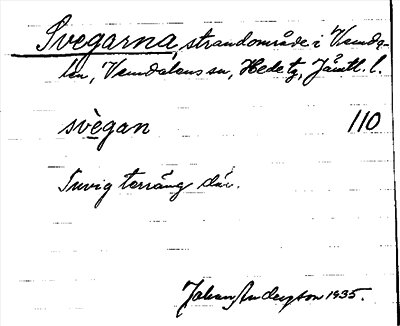 Svegarna, strandområde i Vemda-
len, Vemdalens sn, Hede tg, Jämtl. l.
svègan 110
Tuvig terräng där.
Johan Anderzton 1935.